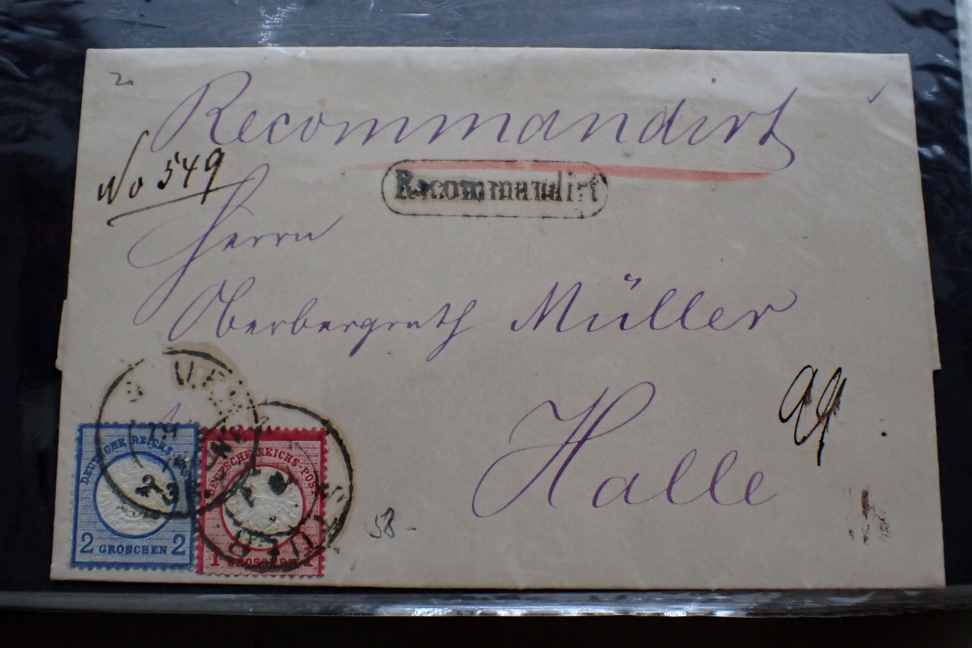 Recommandirt
No 549
Recommandirt
Herrn
Oberbergrath Müller
Halle
99
DEUTSCHE REICHS-POST
2 GROSCHEN 2
DEUTSCHE REICHS-POST
1 GROSCHEN 1
2-3
58-